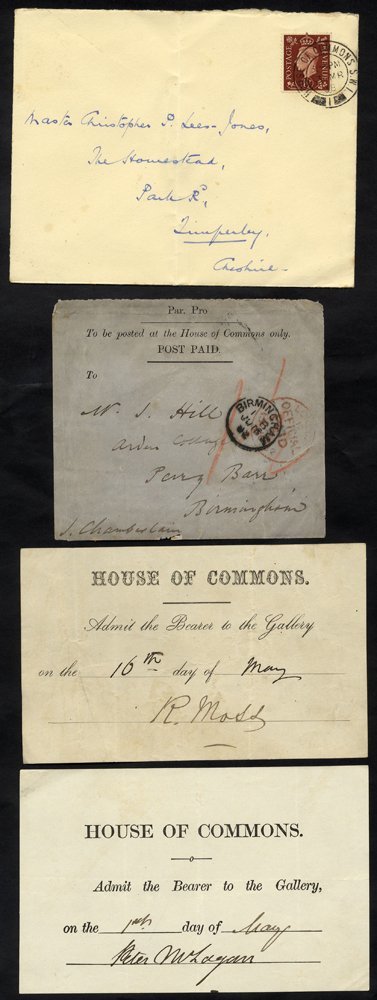 POSTAGE REVENUE
OF COMMONS S.W.1
Master Christopher P. Lees-Jones,
The Homestead,
Park Rd,
Timperley,
Cheshire
Par. Pro
To be posted at the House of Commons only.
POST PAID.
To
W. S. Hill
Arden Cottage
Perry Barr
Birmingham
J. Chamberlain
BIRMINGHAM
OFFICIAL
PAID
HOUSE OF COMMONS.
Admit the Bearer to the Gallery
on the 16th day of May
R. Moss
HOUSE OF COMMONS.
Admit the Bearer to the Gallery,
on the day of May
Peter McLagan